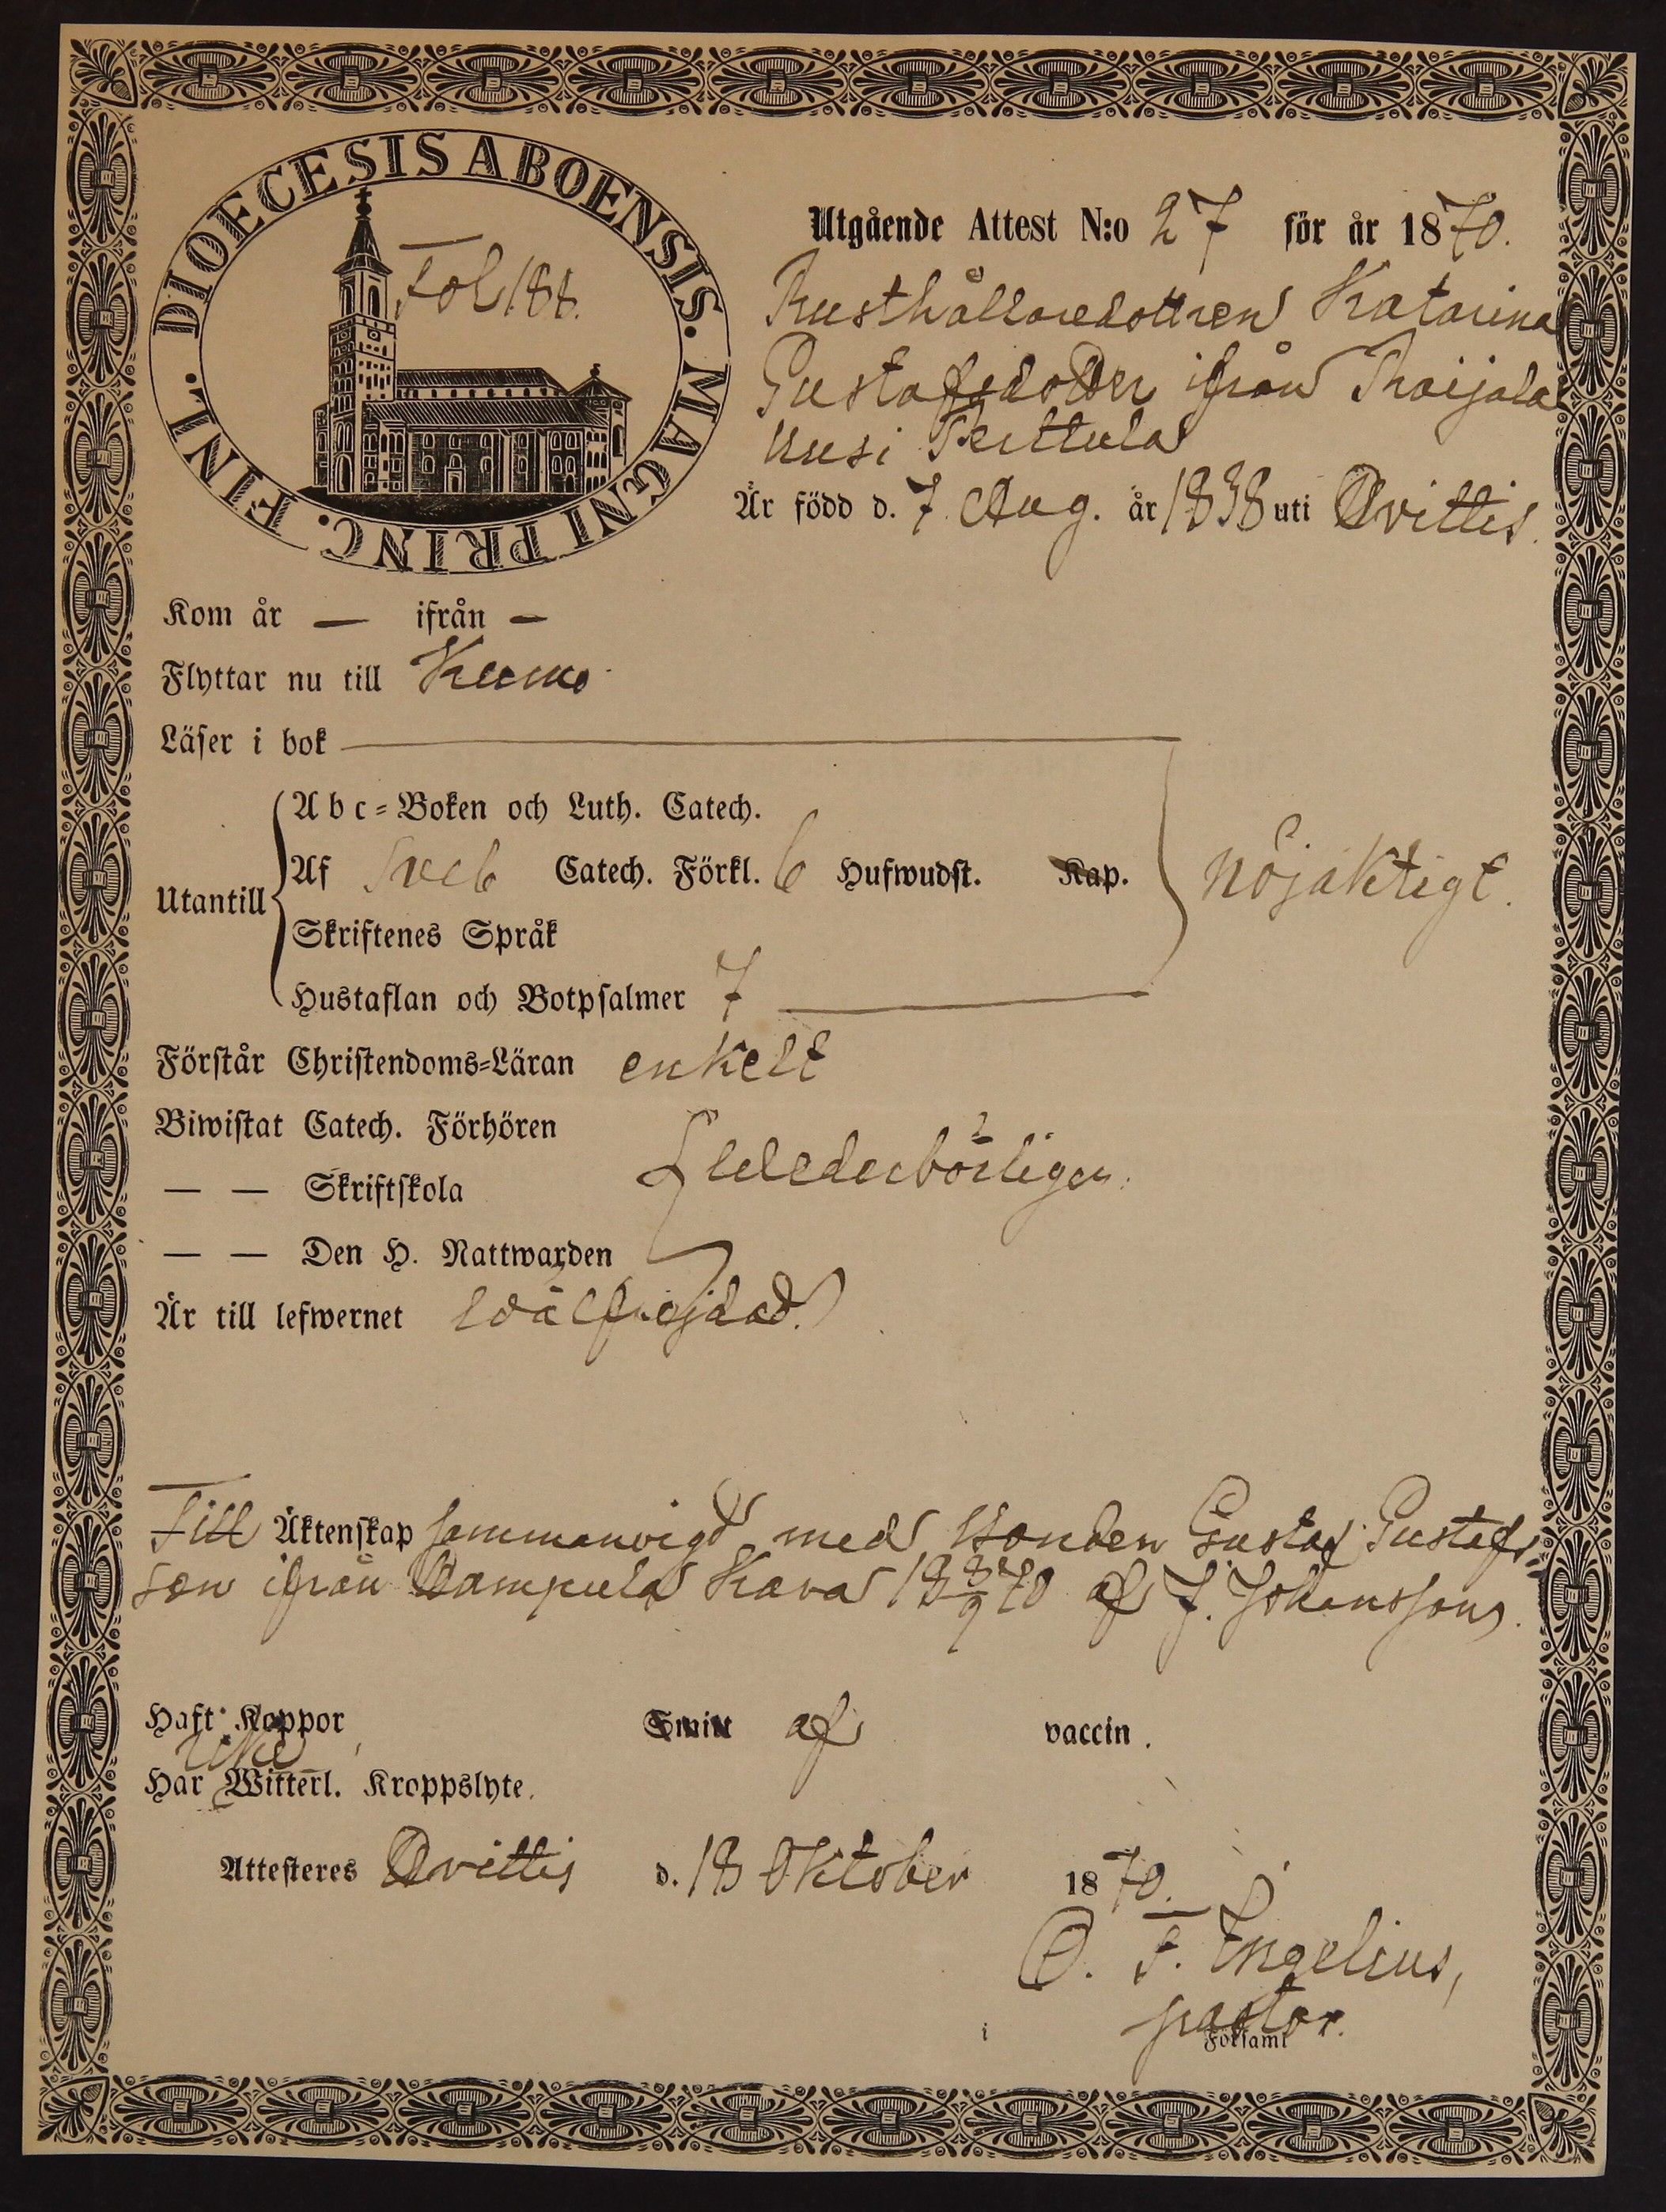 DIOECESIS ABOENSIS. MAGNI PRINC. FINL.
Fol 188.
Utgående Attest N:o 27 för år 1870.
Rusthållaredottren Katarina
Gustafsdotter ifrån Raijala
Uusi Perttula
Är född d. 7 Aug. år 1838 uti Hvittis.
Kom år — ifrån —
Flyttar nu till Kumo
Läser i bok
Utantill
Abc-Boken och Luth. Catech.
Af Sveb Catech. Förkl. 6 Hufwudst. Kap.
Skriftenes Språk
Hustaflan och Botpsalmer 7
nöjaktigt.
Förstår Christendoms-Läran enkelt
Biwistat Catech. Förhören
— — Skriftskola
— — Den H. Nattwarden
vederbörligen.
Är till lefwernet wälfrejdad.
Till Äktenskap sammanvigd med bonden Gustaf Gustafs-
son ifrån Kava 18 70 af J. Johansson.
Haft Koppor Smitt af vaccin.
icke
Har Witterl. Kroppslyte.
Attesteres Hvittis d. 18 Oktober 1870.
F. Engelius,
pastor.
i Församl